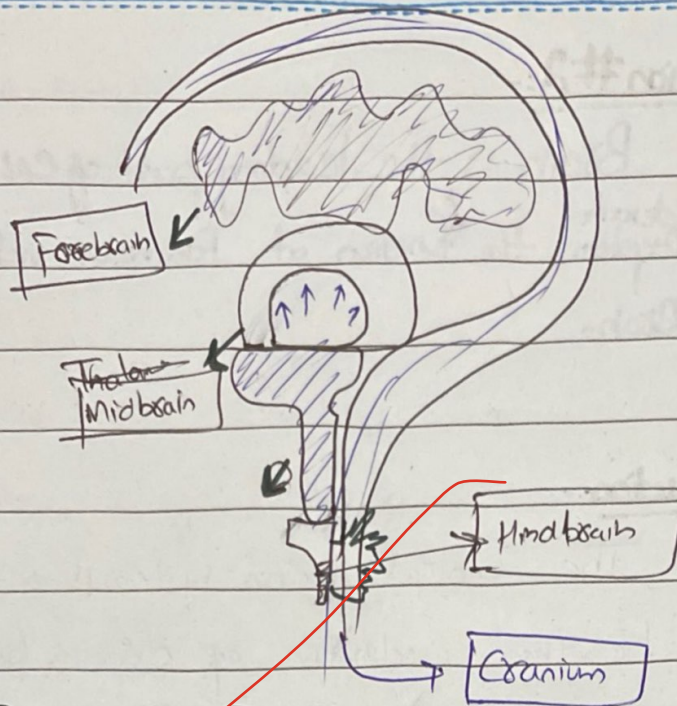 Forebrain
Thalam
Midbrain
Hindbrain
Cranium